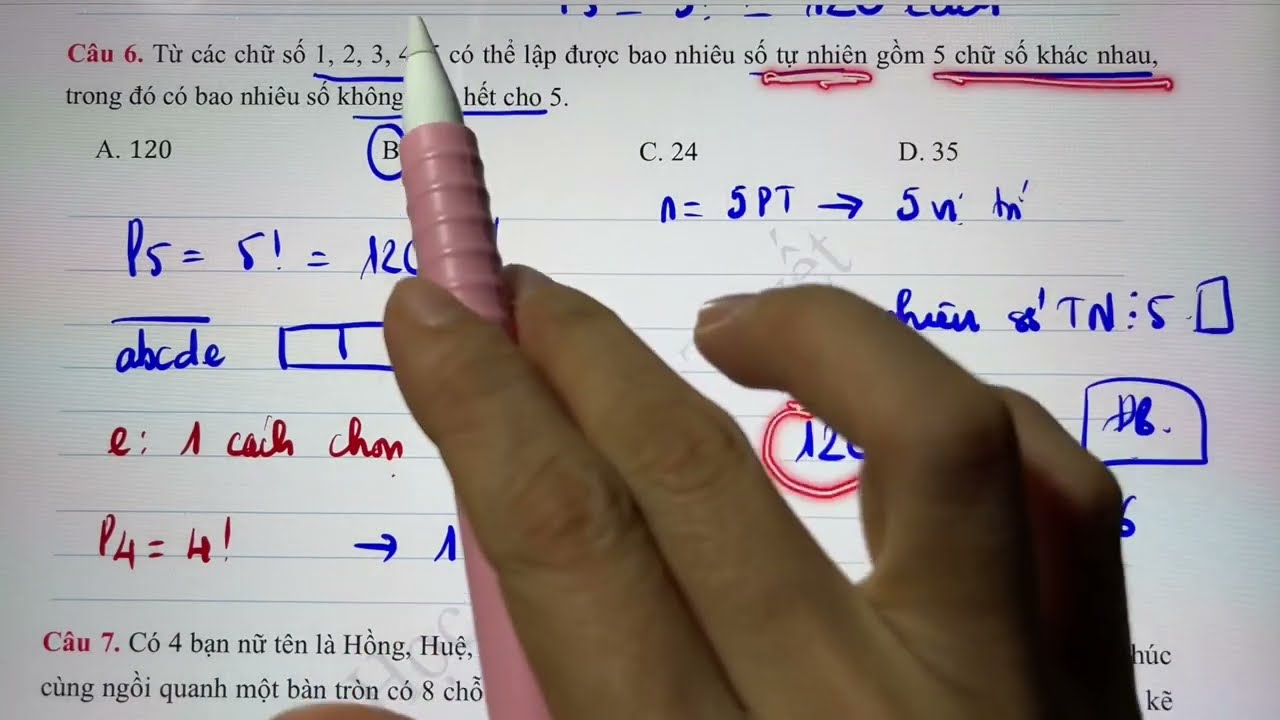 P5 = 5! = 120 cách
Câu 6. Từ các chữ số 1, 2, 3, 4 5 có thể lập được bao nhiêu số tự nhiên gồm 5 chữ số khác nhau,
trong đó có bao nhiêu số không hết cho 5.
A. 120 B C. 24 D. 35
n = 5 PT → 5 vị trí
P5 = 5! = 120
nhiên số TN ⋮ 5
abcde
120 ĐB.
e: 1 cách chọn
P4 = 4! → 1 6
Câu 7. Có 4 bạn nữ tên là Hồng, Huệ, húc
cùng ngồi quanh một bàn tròn có 8 chỗ kẽ